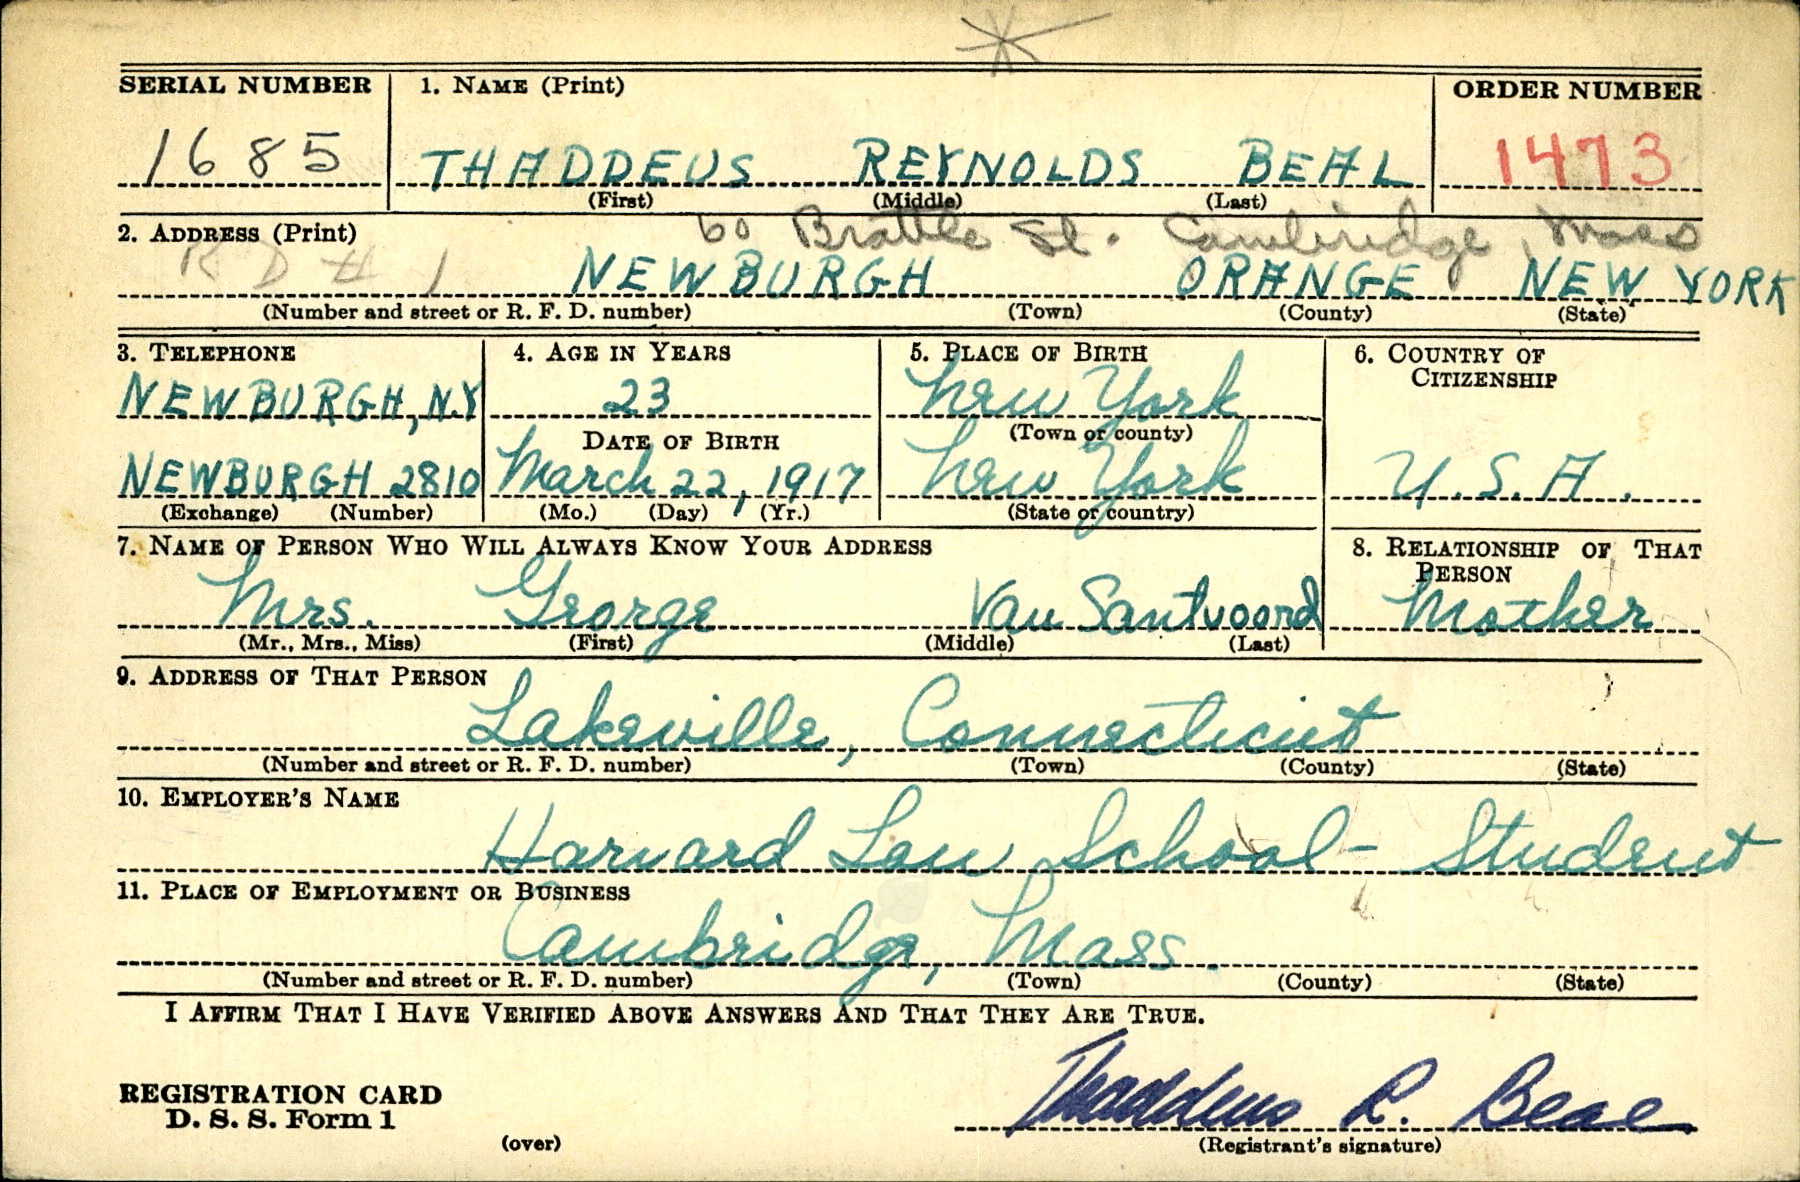 SERIAL NUMBER 1. NAME (Print) ORDER NUMBER
1685 THADDEUS REYNOLDS BEAL 1473
(First) (Middle) (Last)
2. ADDRESS (Print) 60 Brattle St. Cambridge, Mass
R D # 1 NEWBURGH ORANGE NEW YORK
(Number and street or R. F. D. number) (Town) (County) (State)
3. TELEPHONE 4. AGE IN YEARS 5. PLACE OF BIRTH 6. COUNTRY OF
CITIZENSHIP
NEWBURGH, N.Y 23 New York
DATE OF BIRTH (Town or county)
NEWBURGH 2810 March 22, 1917 New York U.S.A.
(Exchange) (Number) (Mo.) (Day) (Yr.) (State or country)
7. NAME OF PERSON WHO WILL ALWAYS KNOW YOUR ADDRESS 8. RELATIONSHIP OF THAT
PERSON
Mrs. George Van Santvoord Mother
(Mr., Mrs., Miss) (First) (Middle) (Last)
9. ADDRESS OF THAT PERSON
Lakeville, Connecticut
(Number and street or R. F. D. number) (Town) (County) (State)
10. EMPLOYER'S NAME
Harvard Law School - Student
11. PLACE OF EMPLOYMENT OR BUSINESS
Cambridge, Mass.
(Number and street or R. F. D. number) (Town) (County) (State)
I AFFIRM THAT I HAVE VERIFIED ABOVE ANSWERS AND THAT THEY ARE TRUE.
REGISTRATION CARD
D. S. S. Form 1 Thaddeus R. Beal
(over) (Registrant's signature)